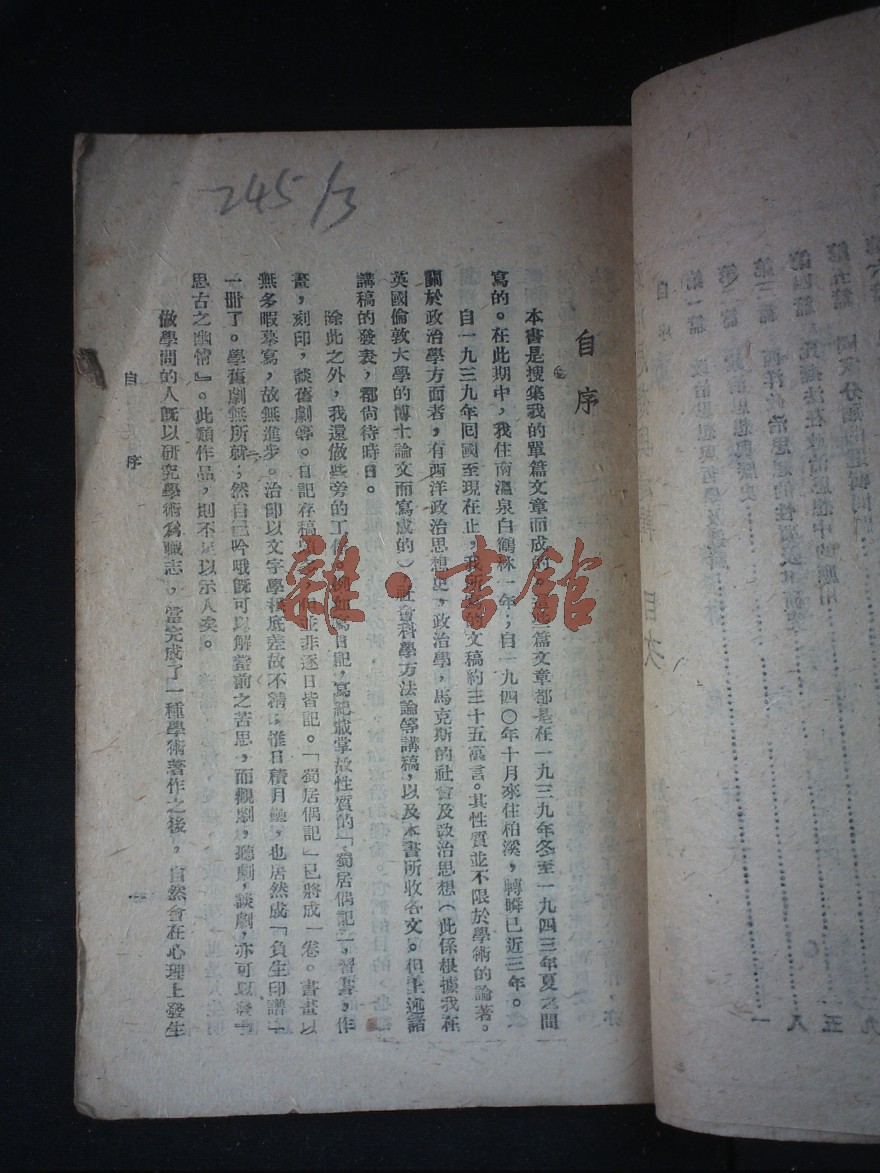 245/3
自序
本書是搜集我的單篇文章而成的。
篇文章都是在一九三九年冬至一九四三年夏之間
寫的。在此期中，我住南溫泉白鶴林一年；自一九四〇年十月來住柏溪，轉瞬已近三年。
自一九三九年回國至現在止，我所
的文稿約三十五萬言。其性質並不限於學術的論著。
關於政治學方面者，有西洋政治思想史，政治學，馬克斯的社會及政治思想（此係根據我在
英國倫敦大學的博士論文而寫成的）社會科學方法論等講稿，以及本書所收各文。但
講稿的發表，都尚待時日。
除此之外，我還做些旁的工作。例如寫日記，寫紀載掌故性質的「蜀居偶記」，習書，作
畫，刻印，談舊劇等。日記存稿
但並非逐日皆記。「蜀居偶記」已將成一卷。書畫以
無多暇摹寫，故無進步。治印以文字學根底差故不精；惟日積月纍，也居然成「負生印譜」
一冊了。學舊劇無所就；然自己吟哦既可以解當前之苦思，而觀劇，聽劇，談劇，亦可以發
思古之幽情』。此類作品，則不足以示人矣。
做學問的人既以研究學術為職志，當完成了一種學術著作之後，自然會在心理上發生
自序
一
雜·書館
目次
自序
第一篇
第二篇
第三篇
第四篇
第五篇
一
八
五
九